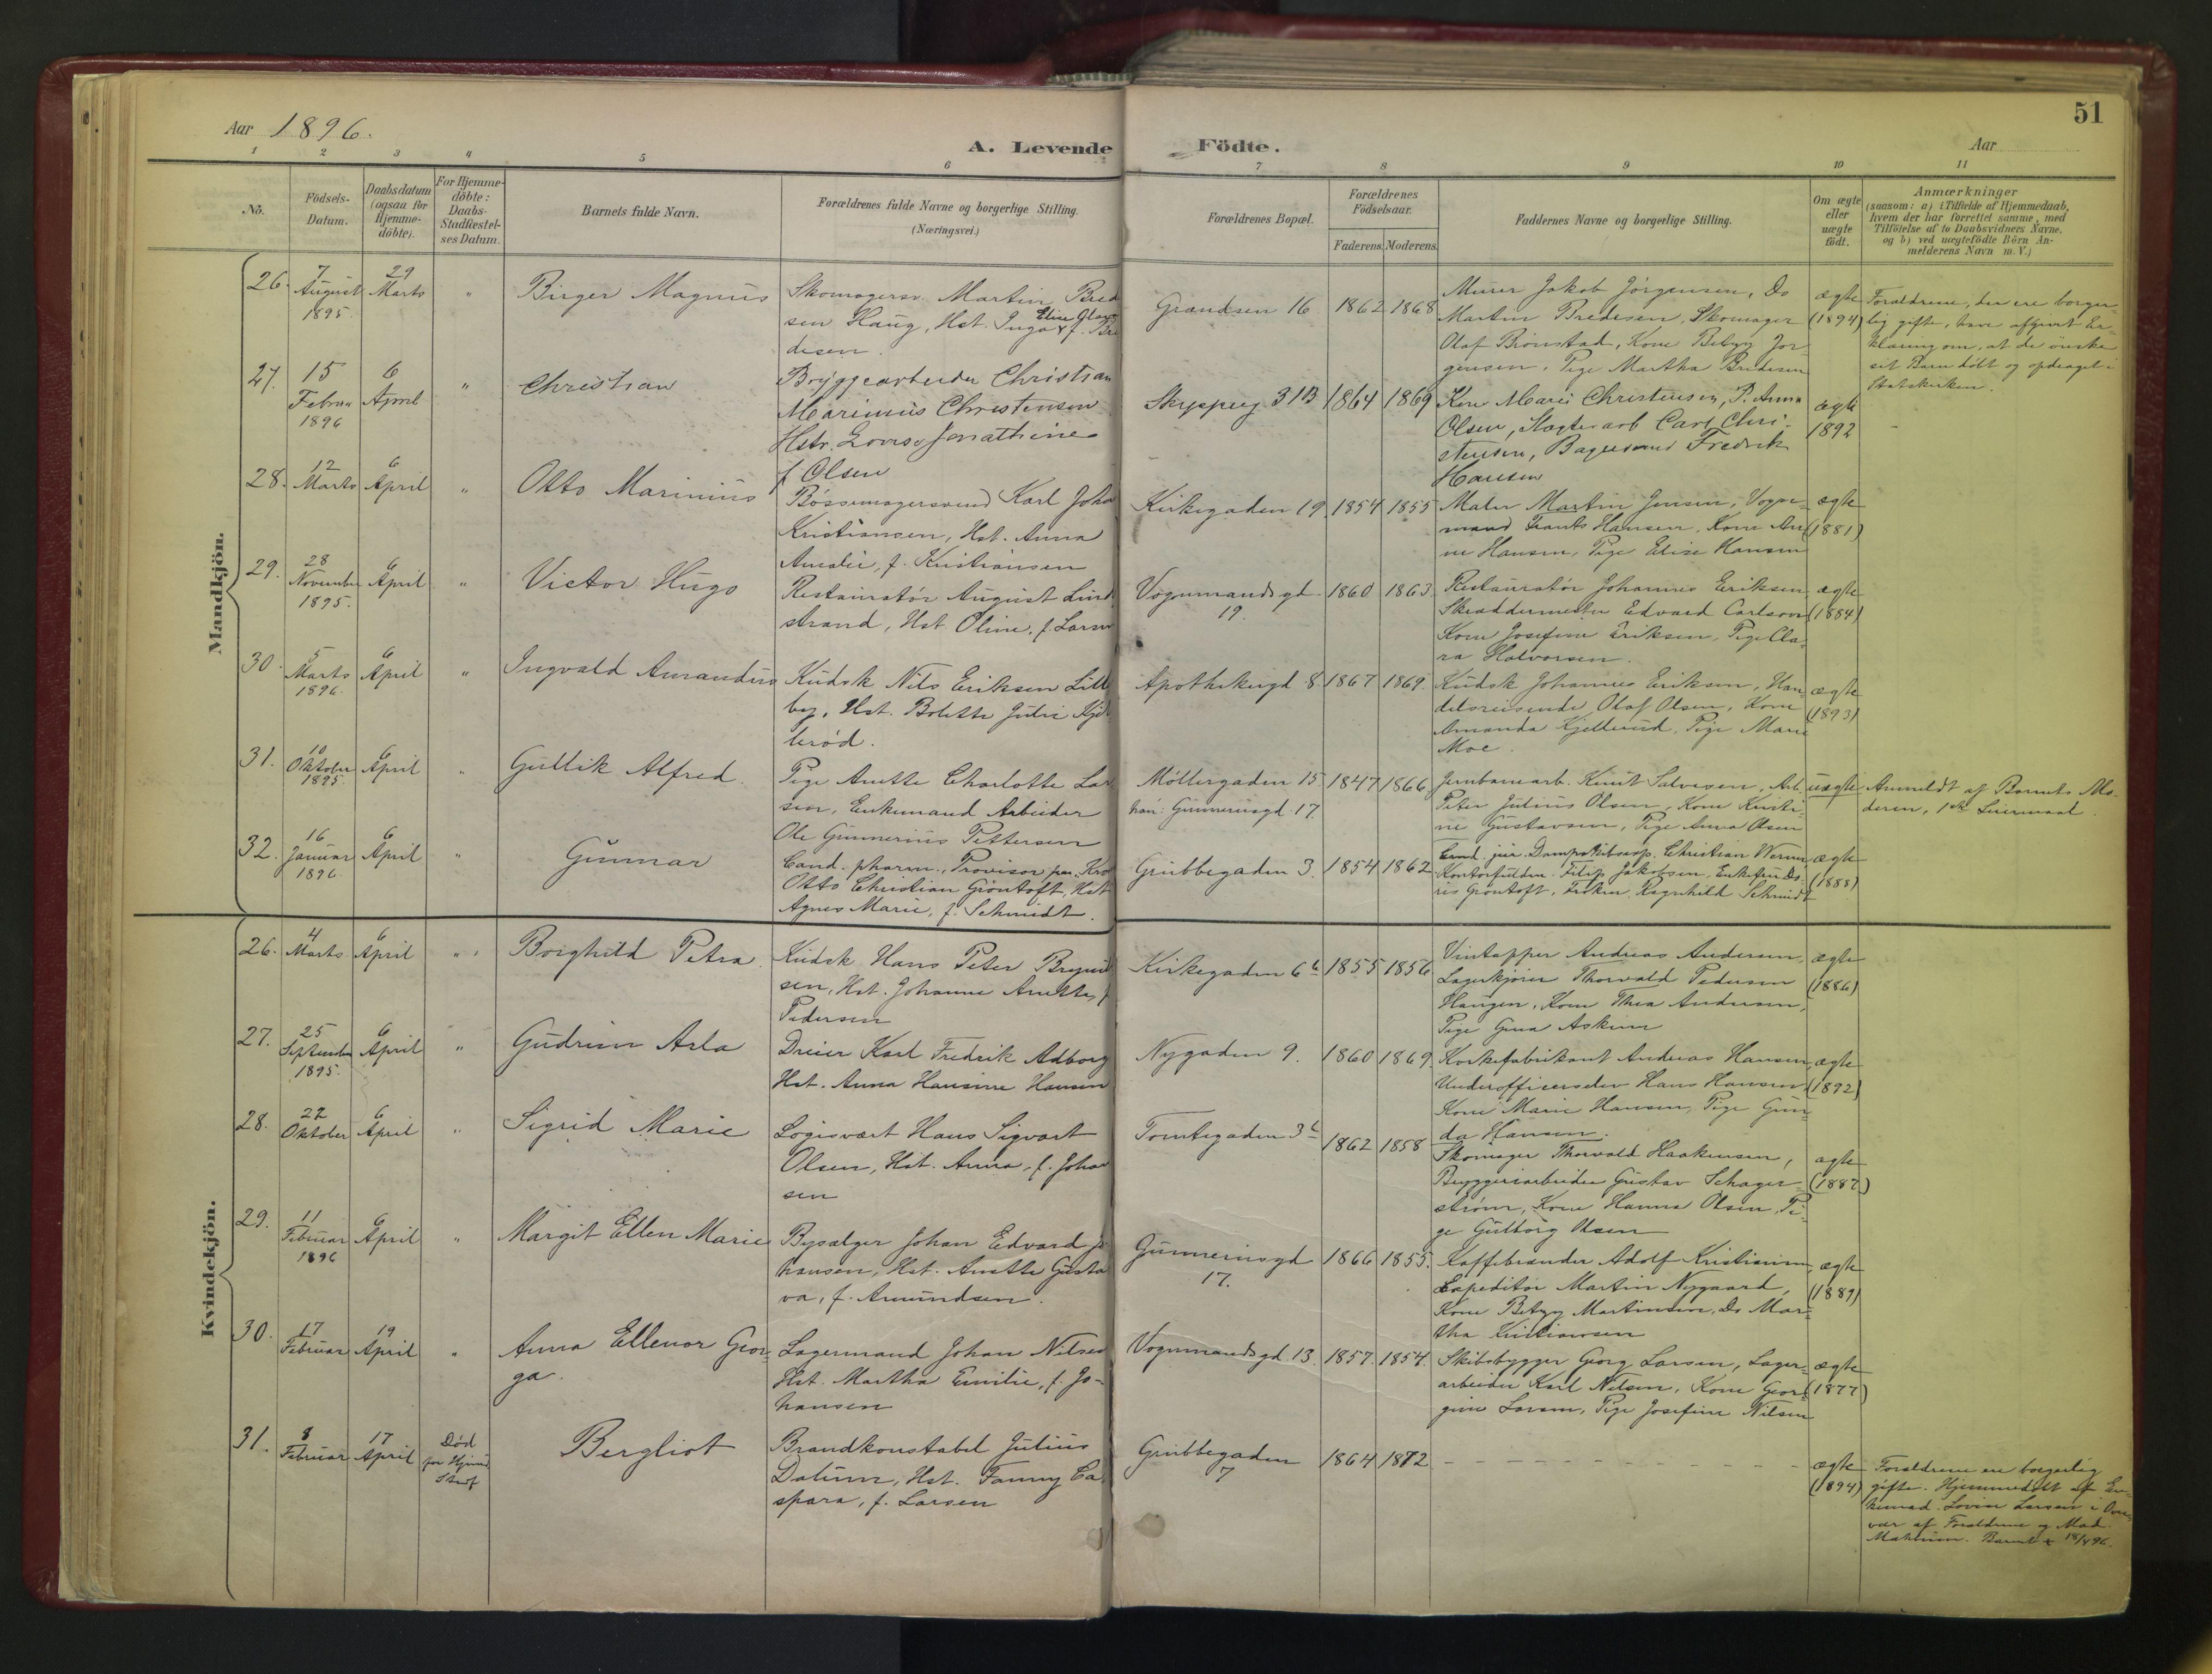 51
Aar 1896.
A. Levende Födte.
Aar
1 2 3 4 5 6 7 8 9 10 11
No.
Födsels-
Datum.
Daabsdatum
(ogsaa for
Hjemme-
döbte).
For Hjemme-
döbte:
Daabs-
Stadfæstel-
ses Datum.
Barnets fulde Navn.
Forældrenes fulde Navne og borgerlige Stilling.
(Næringsvei.)
Forældrenes Bopæl.
Forældrenes
Födselsaar.
Faderens. Moderens.
Faddernes Navne og borgerlige Stilling.
Om ægte
eller
uægte
födt.
Anmærkninger
(saasom: a) i Tilfælde af Hjemmedaab,
hvem der har forrettet samme, med
Tilföielse af to Daabsvidners Navne,
og b) ved uægtefödte Börn An-
melderens Navn m. V.)
Mandkjön.
26.
7
August
1895.
29
Marts
"
Birger Magnus
Skomagersv. Martin Bred
sen Haug, Hst. Inga Elise Olava f. Bre
desen.
Grændsen 16
1862 1868
Murer Jakob Jörgensen, Do
Martin Bredesen, Skomager
Olaf Brönstad, Kone Betzy Jör-
gensen, Pige Martha Bredesen
ægte
(1894)
Forældrene, der ere borger-
lig gifte, have afgivet Er-
klæring om, at de önske
sit Barn döbt og opdraget i
Statskirken.
27.
15
Februar
1896
6
April
"
Christian
Bryggearbeider Christian
Marinius Christensen
Hstr. Lovise Jonathine
f Olsen
Skippergd 31B
1864 1869
Kone Marie Christensen, P. Anna
Olsen, Slagterarb Carl Chri-
stensen, Bagersvend Fredrik
Hansen
ægte
1892
-
28.
12
Marts
6
April
"
Otto Marinius
Bössemagersvend Karl Johan
Kristiansen, Hst. Anna
Amalie, f. Kristiansen
Kirkegaden 19.
1854 1855
Maler Martin Jensen, Vogn-
mand Frants Hansen, Kone An-
ne Hansen, Pige Elise Hansen
ægte
(1881)
29.
28
November
1895.
6
April
"
Victor Hugo
Restauratör August Lind
strand, Hst. Oline, f. Larsen
Vognmandsgd.
19.
1860 1863.
Restauratör Johannes Eriksen
Skræddermester Edvard Carlson
Kone Josefine Eriksen, Pige Cla-
ra Halvorsen.
ægte
(1884)
30.
5
Marts
1896.
6
April
"
Ingvald Amandus
Kudsk Nils Eriksen Lille
by, Hst. Bolette Julie Kjel
leröd.
Apothekergd 8.
1867 1869.
Kudsk Johannes Eriksen, Han-
delsreisende Olaf Olsen, Kone
Amanda Kjellerud, Pige Marie
Moe.
ægte
(1893)
31.
10
Oktober
1895.
6
April
"
Gullik Alfred.
Pige Anette Charlotte Lar
sen, Enkemand Arbeider
Ole Gunnerius Pettersen
Möllergaden 15.
han: Gunneriusgd 17.
1847 1866.
Jernbanearb. Knut Salvesen, Arb.
Peter Julius Olsen, Kone Kristi-
ne Gustavsen, Pige Anna Olsen
uægte
Anmeldt af Barnets Mo-
deren, 1ste Leiermaal.
32.
16
Januar
1896
6
April
"
Gunnar
Cand. pharm., Provisor
Otto Christian Gröntoft, Hst
Agnes Marie, f. Schmidt.
Grubbegaden 3.
1854 1862
Cand. jur. Christian Werner
Filip Jakobsen, Enkefru Do-
ris Gröntoft, Fröken Ragnhild Schmidt
ægte
(1888)
Kvindekjön.
26.
4
Marts
6
April
"
Borghild Petra.
Kudsk Hans Peter Brynild
sen, Hst. Johanne Anette, f
Pedersen
Kirkegaden 6b
1855 1856
Vintapper Andreas Andersen,
Lagerkjörer Thorvald Pedersen
Haugen, Kone Thea Andersen,
Pige Gina Askim
ægte
(1886)
27.
25
September
1895.
6
April
"
Gudrun Asla
Dreier Karl Fredrik Adborg
Hst. Anna Hansine Hansen
Nygaden 9.
1860 1869.
Korkefabrikant Andreas Hansen
Underofficerselev Hans Hansen
Kone Marie Hansen, Pige Gun-
da Hansen.
ægte
(1892)
28.
22
Oktober
6
April
"
Sigrid Marie
Logisvært Hans Sigvart
Olsen, Hst. Anna, f. Johan
sen
Tomtegaden 3b
1862 1858
Skomager Thorvald Haakensen,
Bryggeriarbeider Gustav Schager-
ström, Kone Hanna Olsen, Pi-
ge Gulborg Olsen
ægte
(1887)
29.
11
Februar
1896
6
April
"
Margit Ellen Marie
Bysælger Johan Edvard Jo
hansen, Hst. Anette Gusta
va, f. Amundsen.
Gunneriusgd
17.
1866 1855.
Kaffebrænder Adolf Kristiansen
Expeditör Martin Nygaard,
Kone Betzy Martinsen, Do Mar-
tha Kristiansen
ægte
(1889)
30.
17
Februar
19
April
"
Anna Ellenor Geor-
ga.
Lagermand Johan Nilsen
Hst. Martha Emilie, f. Jo-
hansen
Vognmandsgd 13.
1857. 1854.
Skibsbygger Georg Larsen, Lager-
arbeider Karl Nilsen, Kone Geor-
gine Larsen, Pige Josefine Nilsen
ægte
(1877)
31.
8
Februar
17
April
Död
før Hjemd
Stadf
Bergliot
Brandkonstabel Julius
Dalum, Hst. Fanny Ca
spara, f. Larsen
Grubbegaden
7
1864 1872
- - - - - - - - - - - -
ægte
(1894)
Forældrene ere borgerlig
gifte. Hjemmedöbt af En-
kemad. Lovise Larsen i Over-
vær af Forældrene og Mad.
Barnet + 18/4 96.